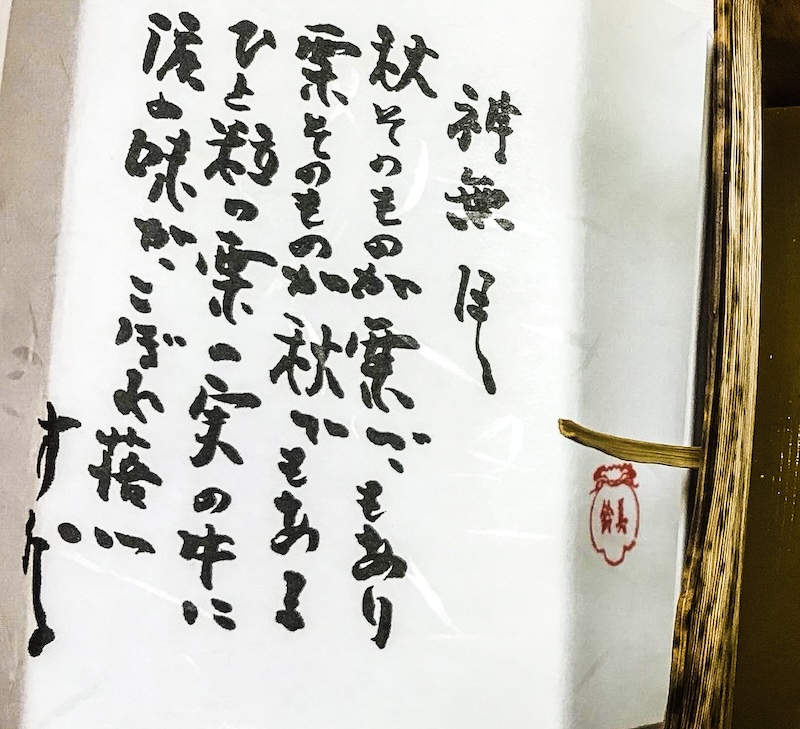 神無 ほし
秋そのものが栗でもあり
栗そのものが秋でもある
ひと粒の栗の実の中に
味がこぼれ落